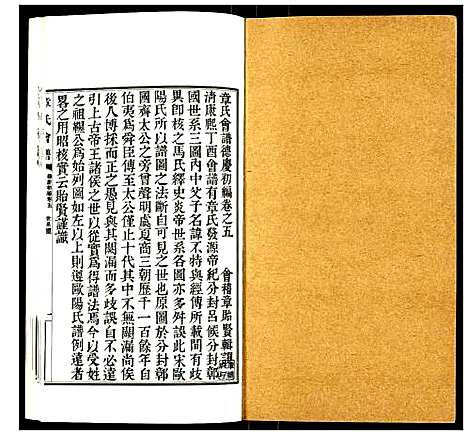 章氏會譜德慶初編卷之五
會稽章貽賢輯
清康熙丁酉會譜有章氏發源帝紀分封呂候分封鄣
國世系三圖內中父子名諱不特與經傳所載間有歧
異即核之馬氏繹史炎帝世系各圖亦多舛誤此宋歐
陽氏所以譜圖之法斷自可見之世也原圖於分封鄣
國齊太公之旁曾聲明虞夏商三朝歷千一百餘年自
伯夷為舜臣傳至太公僅十代其中不無闕漏尚俟
後人博採而正之愚見與其闕漏而多歧誤自不必遠
引上古帝王諸侯之世以從實為得譜法焉今以受姓
之祖韞公為始列圖如左以上則遵歐陽氏譜例遠者
畧之用昭核實云貽賢謹識
章氏會譜